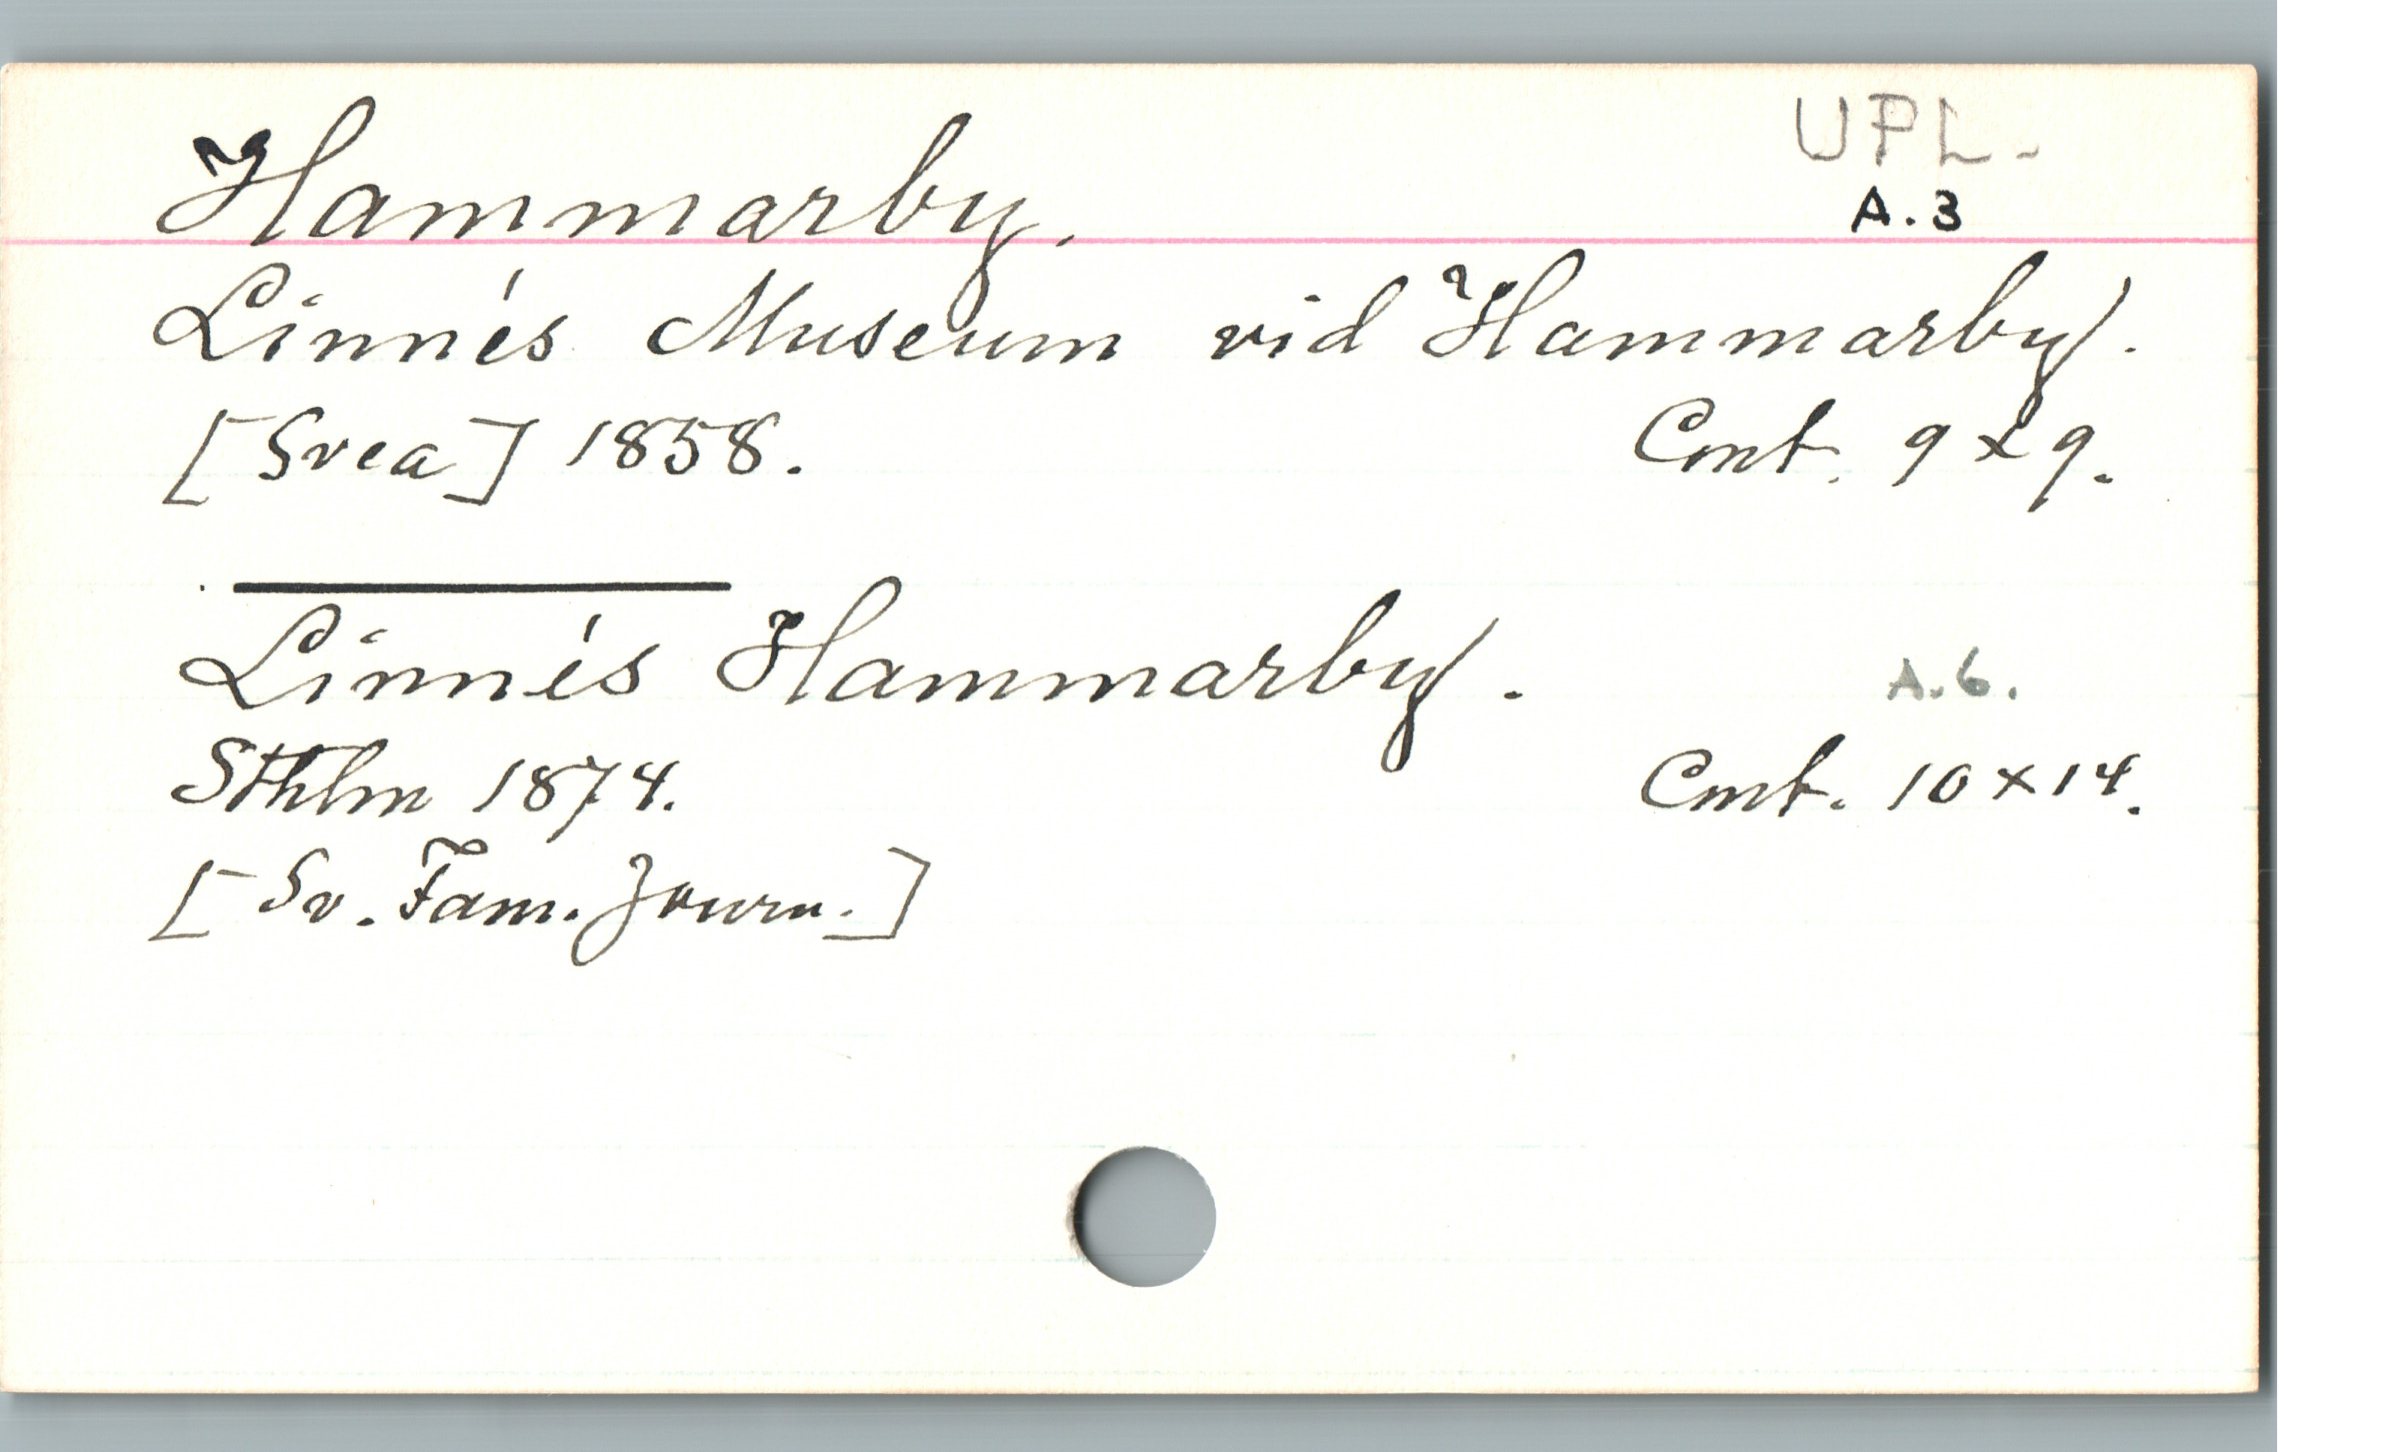 UPL-
Hammarby. A.3
Linnés Museum vid Hammarby.
[Svea] 1858. Cmt. 9 x 9.
Linnés Hammarby. A.6.
Sthlm 1874. Cmt. 10 x 14.
[Sv. Fam. Journ.]